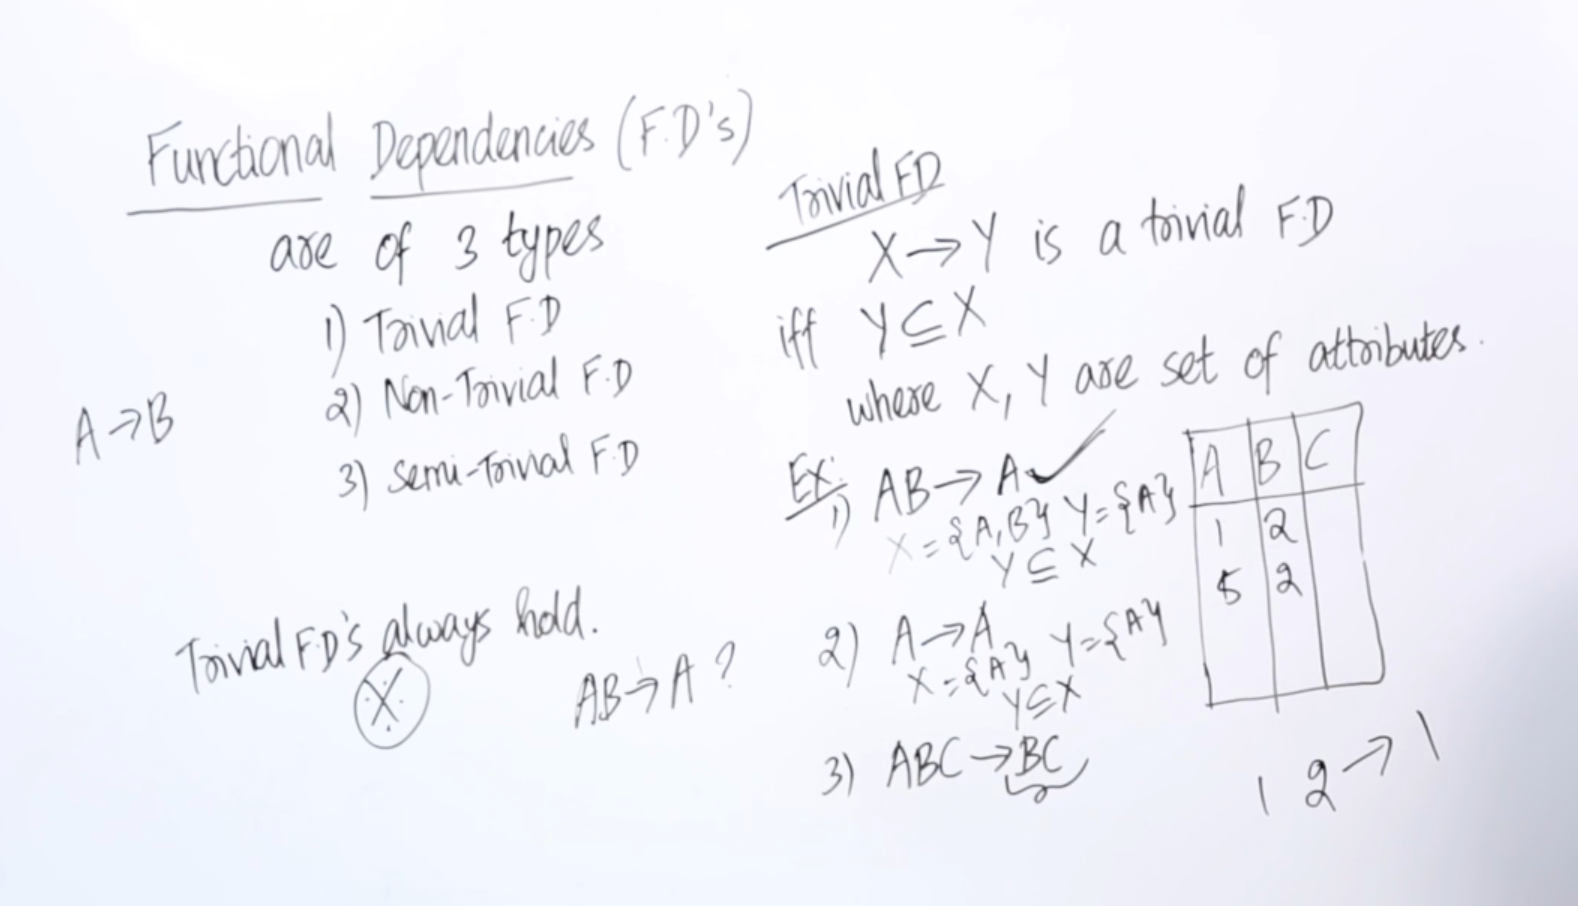 Functional Dependencies (F.D's)
are of 3 types
1) Trivial F.D
2) Non-Trivial F.D
3) Semi-Trivial F.D
A→B
Trivial F.D's always hold.
X
AB→A ?
Trivial FD
X→Y is a trivial F.D
iff Y⊆X
where X, Y are set of attributes.
Ex:
1) AB→A ✓
X={A,B} Y={A}
Y⊆X
2) A→A
X={A} Y={A}
Y⊆X
3) ABC→BC
A B C
1 2
5 2
1 2→1